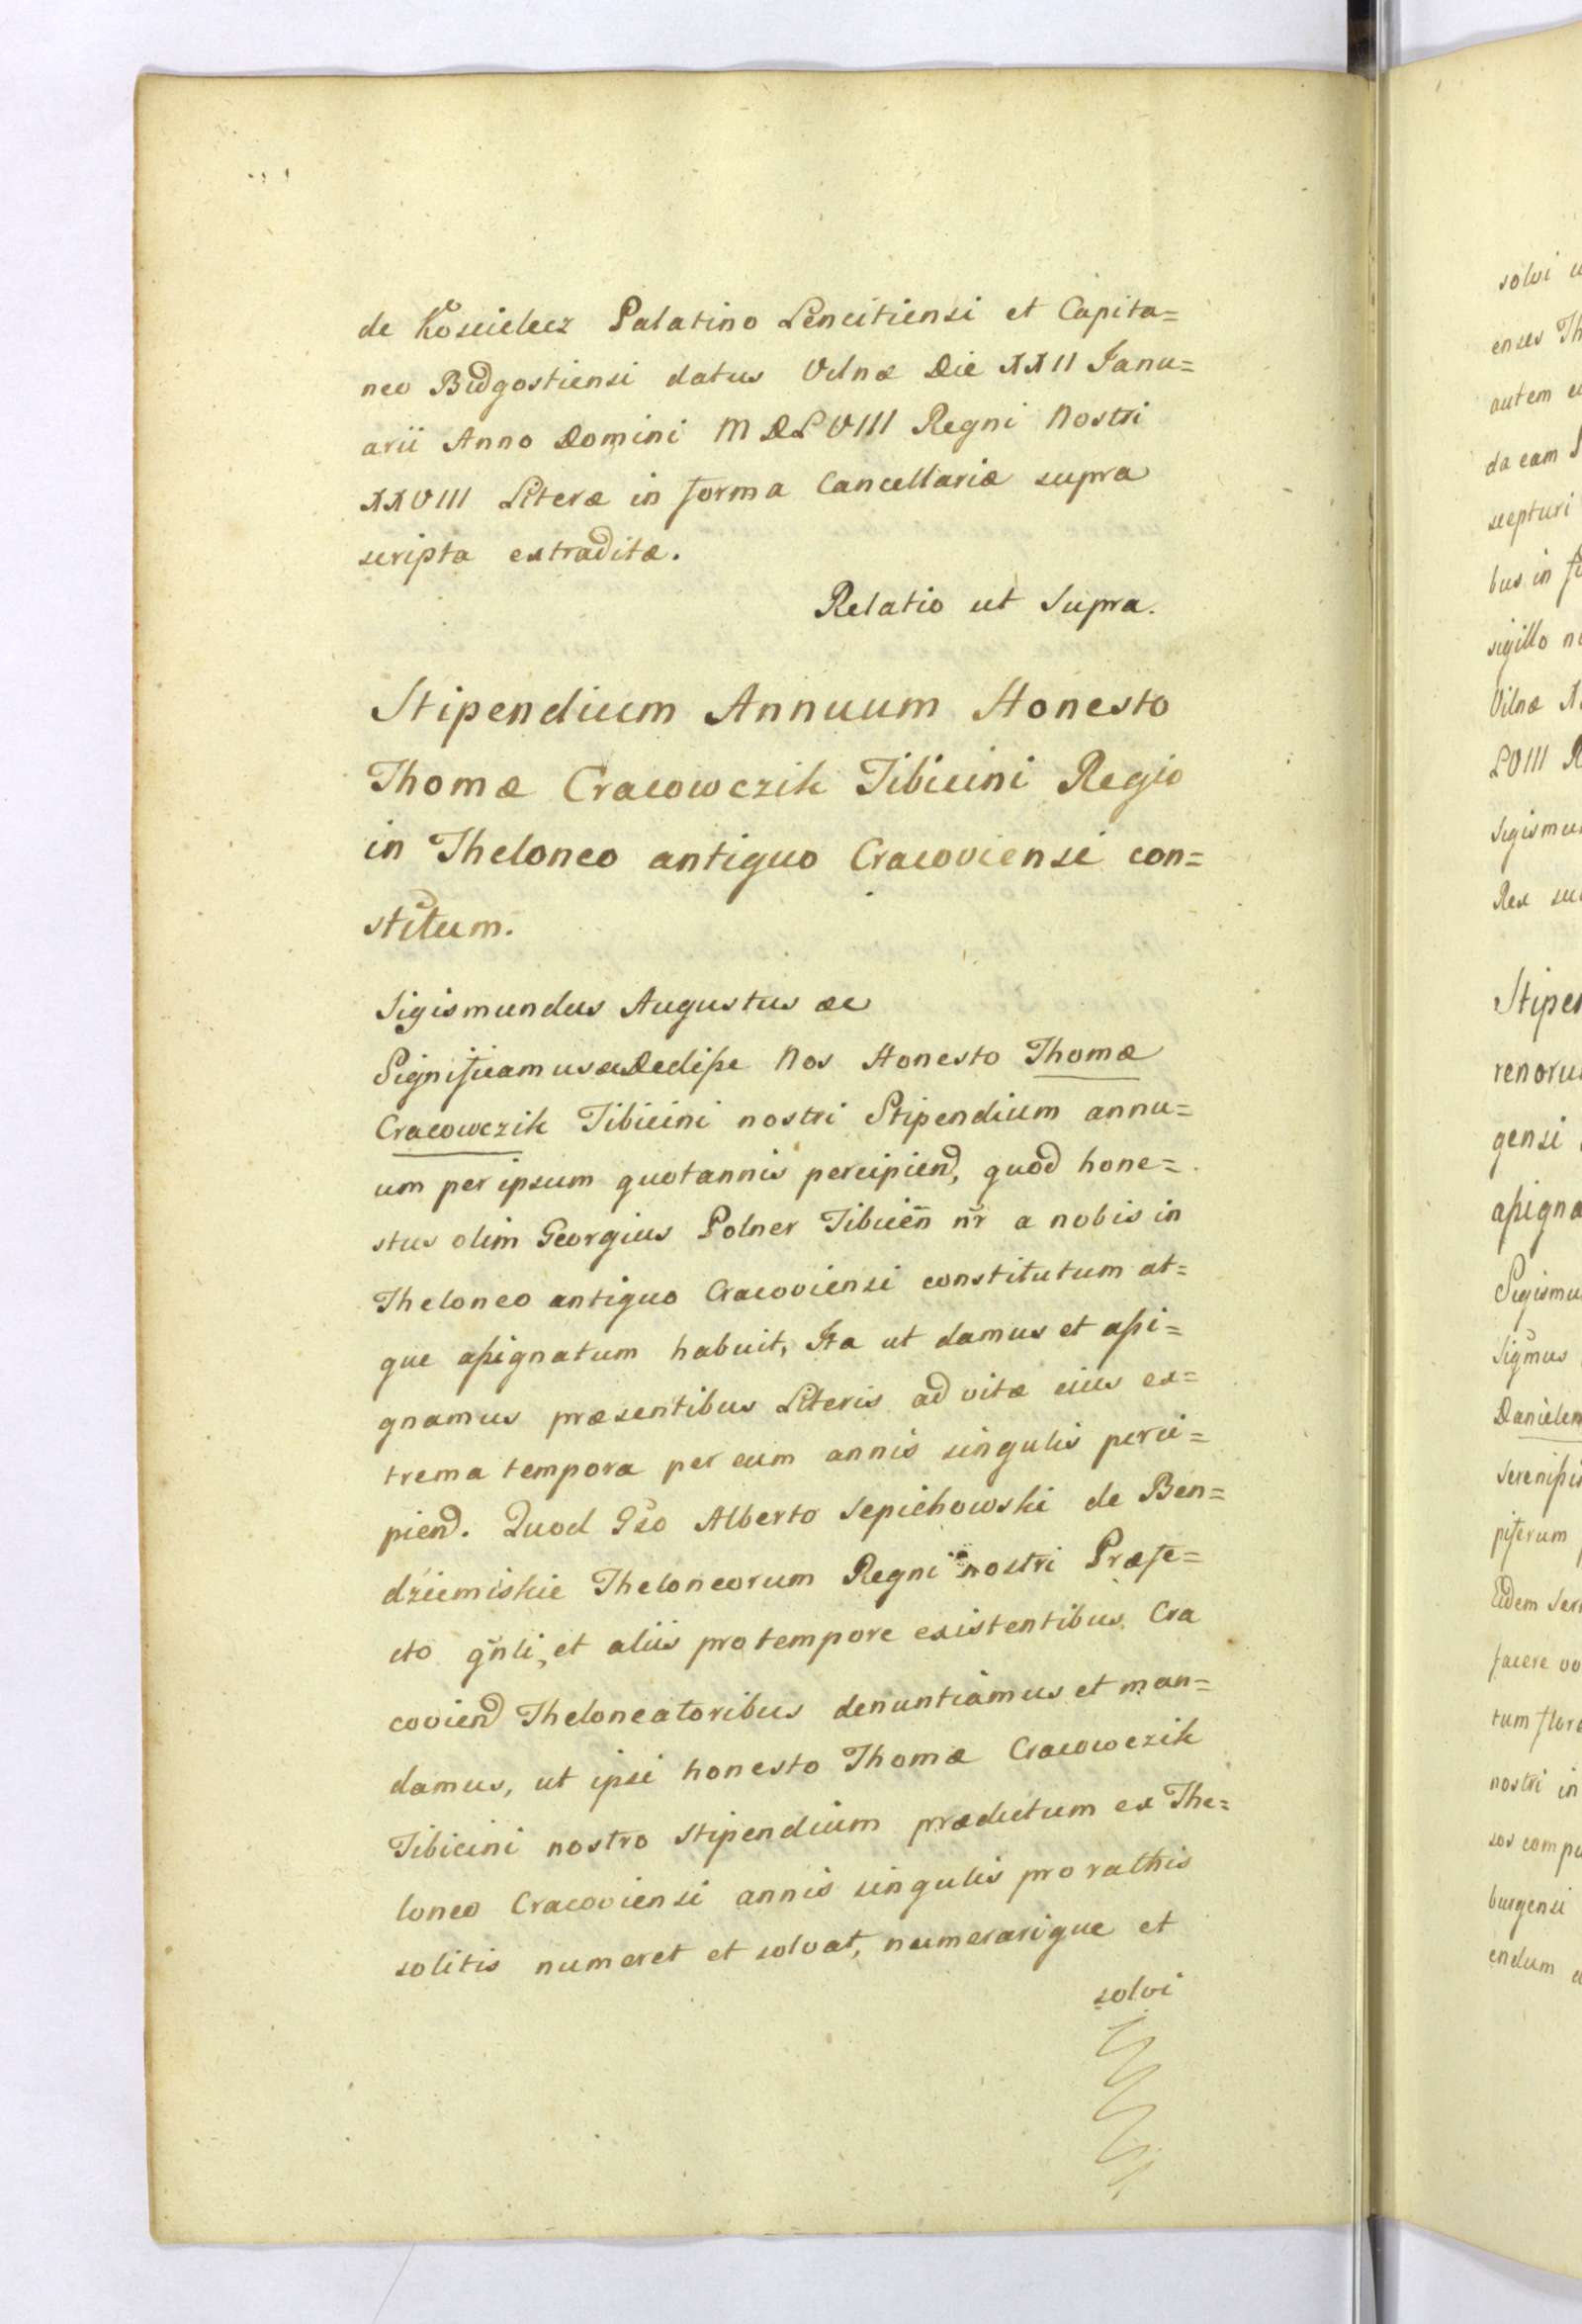 de Koscielecz Palatino Lencitiensi et Capita=
neo Bidgostiensi datus Vilnæ Die XXII Janu=
arii Anno Domini MDLVIII Regni Nostri
XXVIII Literæ in forma Cancellariæ supra
scripta extraditæ.
Relatio ut Supra.
Stipendium Annuum Honesto
Thomæ Cracowczik Tibicini Regio
in Theloneo antiquo Cracoviensi con=
stitum.
Sigismundus Augustus &c
Significamus &c Dedisse Nos Honesto Thomæ
Cracowczik Tibicini nostri Stipendium annu=
um per ipsum quotannis percipiend, quod hone=
stus olim Georgius Polner Tibicen nr a nobis in
Theloneo antiquo Cracoviensi constitutum at=
que assignatum habuit, Ita ut damus et assi=
gnamus præsentibus Literis ad vitæ eius ex=
trema tempora per eum annis singulis perci=
piend. Quod Gso Alberto Sepichowski de Ben=
dziemiskie Theloneorum Regni nostri Præfe=
cto gnli, et aliis pro tempore existentibus Cra
coviend Theloneatoribus denuntiamus et man=
damus, ut ipsi honesto Thomæ Cracowczik
Tibicini nostro Stipendium prædictum ex The=
loneo Cracoviensi annis singulis pro rathis
solitis numeret et solvat, numerarique et
solvi
solvi
enses Th
autem
da eam
scepturi
bus in
sigillo
Vilnæ
LVIII
Sigismu
Rex
Stipen
renoru
gensi
assigna
Sigismu
Sigmus
Danielem
Serenissi
Eidem
facere
tum
nostri in
burgensi
endum